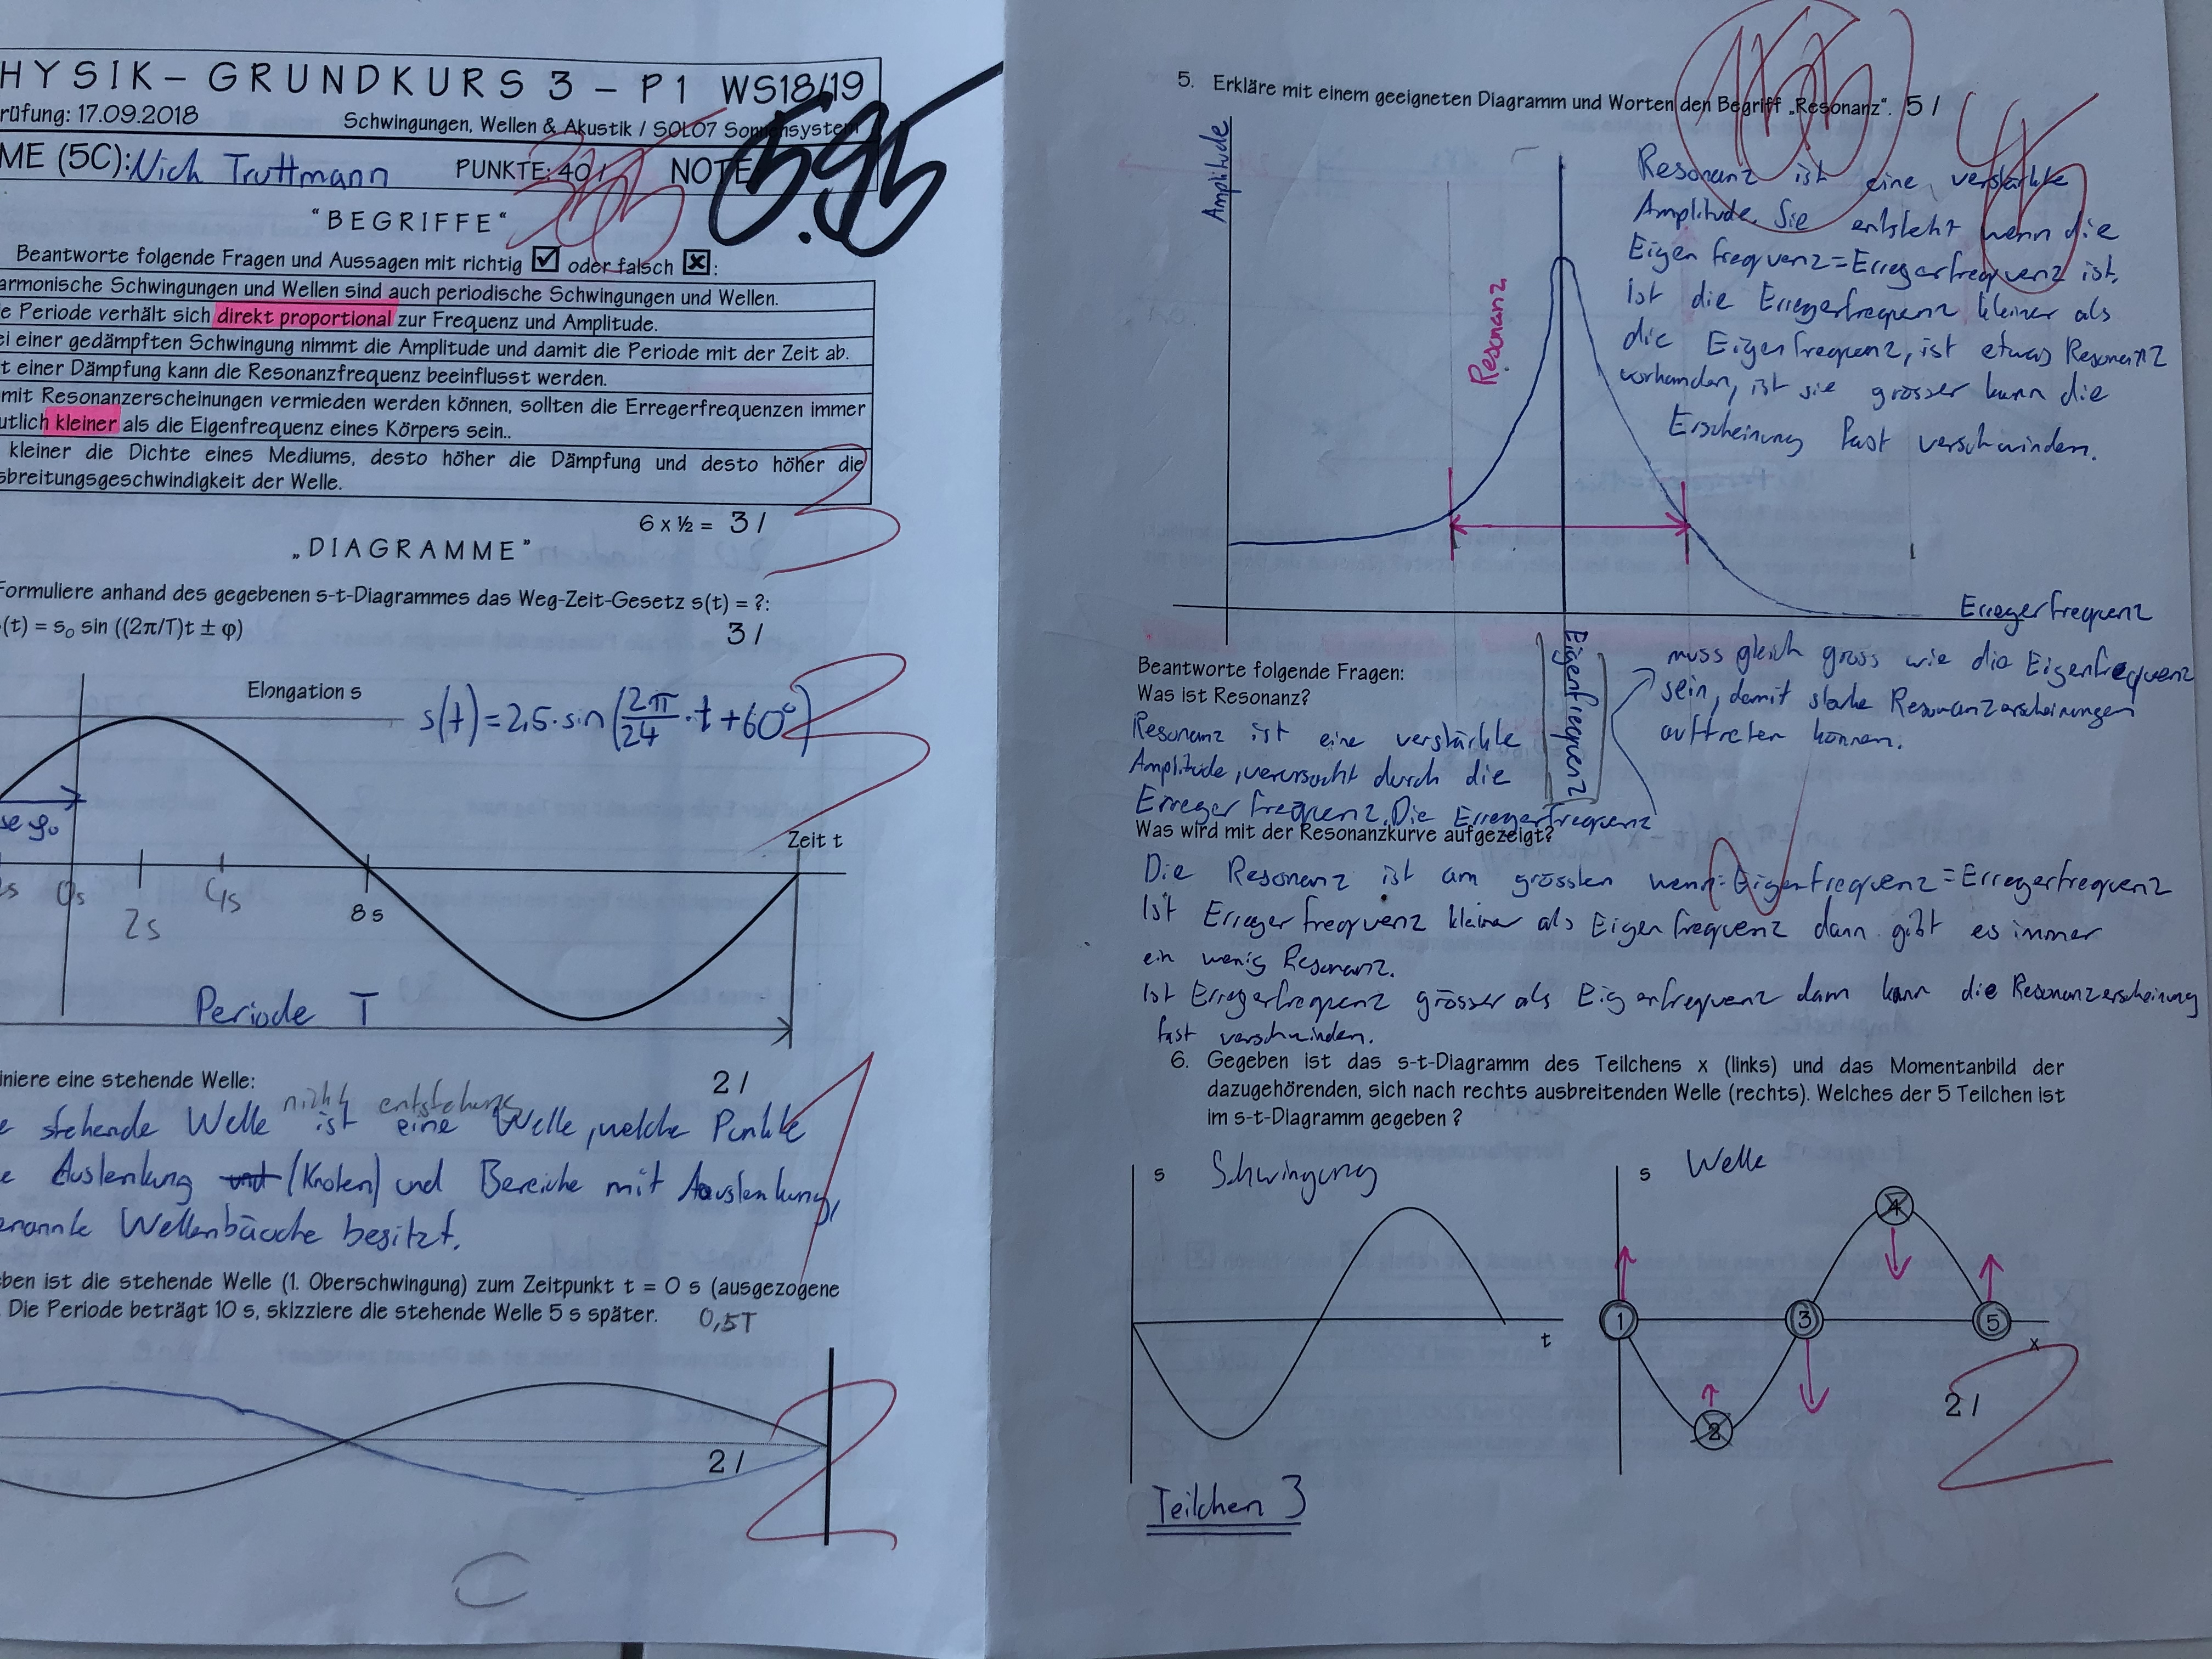 HYSIK – GRUNDKURS 3 – P1 WS18/19
rüfung: 17.09.2018 Schwingungen, Wellen & Akustik / SOL07 Sonnensystem
ME (5C): Nick Truttmann PUNKTE: 40 / NOTE 5.95
"BEGRIFFE"
Beantworte folgende Fragen und Aussagen mit richtig ☑ oder falsch ☒:
armonische Schwingungen und Wellen sind auch periodische Schwingungen und Wellen.
e Periode verhält sich direkt proportional zur Frequenz und Amplitude.
ei einer gedämpften Schwingung nimmt die Amplitude und damit die Periode mit der Zeit ab.
t einer Dämpfung kann die Resonanzfrequenz beeinflusst werden.
mit Resonanzerscheinungen vermieden werden können, sollten die Erregerfrequenzen immer
utlich kleiner als die Eigenfrequenz eines Körpers sein..
kleiner die Dichte eines Mediums, desto höher die Dämpfung und desto höher die
sbreitungsgeschwindigkeit der Welle.
6 x ½ = 3 / 3
„DIAGRAMME"
Formuliere anhand des gegebenen s-t-Diagrammes das Weg-Zeit-Gesetz s(t) = ?:
(t) = s₀ sin ((2π/T)t ± φ) 3 / 3
Elongation s
s(t) = 2,5 · sin (2π/24 · t + 60°)
se φ₀
Zeit t
s 0s 2s 4s 8 s
Periode T
iniere eine stehende Welle: 2 / 1
nicht entstehung
e stehende Welle ist eine Welle, welche Punkte
e Auslenkung und (Knoten) und Bereiche mit Auslenkung,
enannte Wellenbäuche besitzt.
ben ist die stehende Welle (1. Oberschwingung) zum Zeitpunkt t = 0 s (ausgezogene
. Die Periode beträgt 10 s, skizziere die stehende Welle 5 s später. 0,5T
2 / 2
5. Erkläre mit einem geeigneten Diagramm und Worten den Begriff „Resonanz". 5 /
Amplitude
Resonanz
Resonanz ist eine verstärkte
Amplitude. Sie entsteht wenn die
Eigenfrequenz = Erregerfrequenz ist.
Ist die Erregerfrequenz kleiner als
die Eigenfrequenz, ist etwas Resonanz
vorhanden, ist sie grösser kann die
Erscheinung fast verschwinden.
Erregerfrequenz
Eigenfrequenz
muss gleich gross wie die Eigenfrequenz
sein, damit starke Resonanzerscheinungen
auftreten können.
Beantworte folgende Fragen:
Was ist Resonanz?
Resonanz ist eine verstärkte
Amplitude, verursacht durch die
Erregerfrequenz. Die Erregerfrequenz
Was wird mit der Resonanzkurve aufgezeigt?
Die Resonanz ist am grössten wenn: Eigenfrequenz = Erregerfrequenz
Ist Erregerfrequenz kleiner als Eigenfrequenz dann gibt es immer
ein wenig Resonanz.
Ist Erregerfrequenz grösser als Eigenfrequenz dann kann die Resonanzerscheinung
fast verschwinden.
6. Gegeben ist das s-t-Diagramm des Teilchens x (links) und das Momentanbild der
dazugehörenden, sich nach rechts ausbreitenden Welle (rechts). Welches der 5 Teilchen ist
im s-t-Diagramm gegeben ?
s Schwingung s Welle
4
1 3 5
t x
2
2 / 2
Teilchen 3